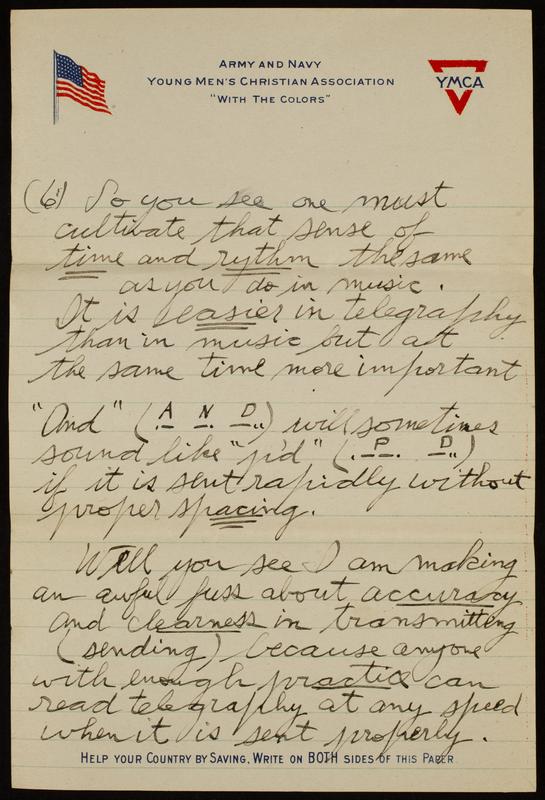 ARMY AND NAVY
YOUNG MEN'S CHRISTIAN ASSOCIATION
"WITH THE COLORS"
YMCA
(6) So you see one must
cultivate that sense of
time and rythm the same
as you do in music.
It is easier in telegraphy
than in music but at
the same time more important
"And" (A N D) will sometimes
.— —. —..
sound like "p'd" (P D)
.——. —..
if it is sent rapidly without
proper spacing.
Well you see I am making
an awful fuss about accuracy
and clearness in transmitting
(sending) because anyone
with enough practice can
read telegraphy at any speed
when it is sent properly.
HELP YOUR COUNTRY BY SAVING, WRITE ON BOTH SIDES OF THIS PAPER